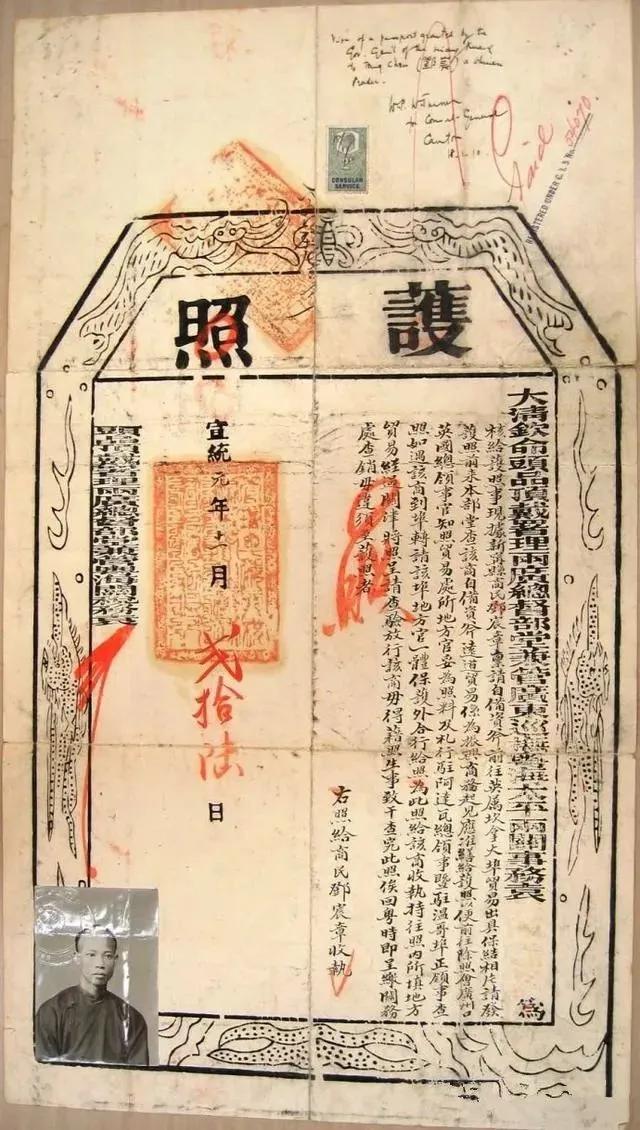 View of a passport granted by the
Gov. Genl of the Liang Kuang
to Tang Chan (鄧宸) a Chinese
Trader.
Consul-General
Canton
CONSULAR
SERVICE
Paid
REGISTERED UNDER C. I. 5 No.
護照
大清欽命頭品頂戴署理兩廣總督部堂兼管廣東巡撫太平兩關事務袁 為
核給護照事現據新寧縣商民鄧宸章稟請自備資斧前往英屬坎拿大埠貿易出具保結相片請發
護照前來本部堂查該商自備資斧遠道貿易係為振興商務起見應准繕給護照以便前往除照會廣州口
英國總領事官知照貿易處所地方官妥為照料及札行駐阿達瓦總領事暨駐溫哥埠正領事查
照如遇該商到埠轉請該埠地方官一體保護外合行給照為此照給該商收執持往照內所填地方
貿易經過關津時照呈請查驗放行該商毋得藉照生事致干查究此照俟回粵時即呈繳關務
處查銷毋違須至護照者
右照給商民鄧宸章收執
宣統元年十一月貳拾陸日